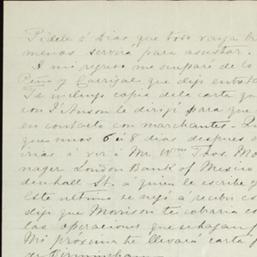 Pídele á Dios que todo vaya b
menos servera para asustar.
A mi regreso me amparé de lo
Peña y Carrigal que dejé
Te incluyo copia de la carta qu
con I'Anson le dirijí para que
en contacto con marchantes.
que unos 6 ú 8 dias despues
á ver á Mr. Wm Thos. Mo
nager London Bank of Mexico
denhall St. á quien le escribe
Este ultimo se negó á recibir co
dijo que Morrison te cobraria co
las operaciones que
Mi proxima te llevará carta p
de Birmingham